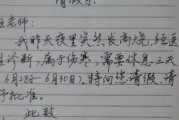 请假条
老师：
我昨天夜里突然发高烧，经医
生诊断，属于伤寒，需要休息三天
6月28日—6月30日），特向您请假，请
予批准。
此致